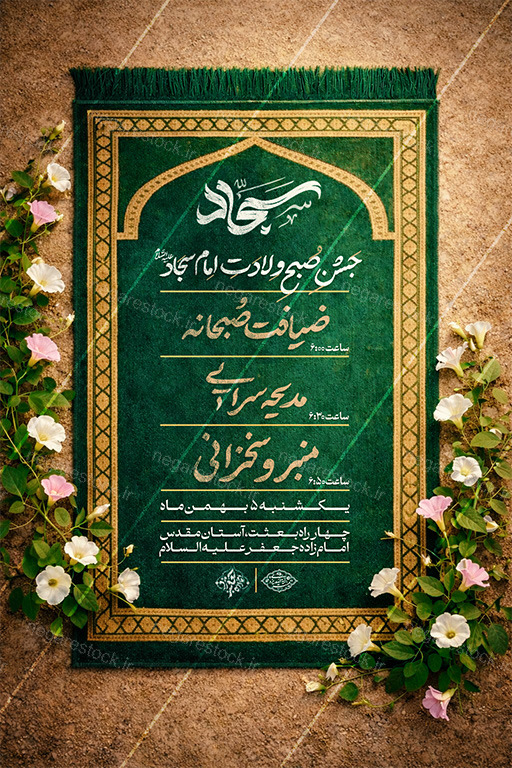 سجاد
جشن صبح ولادت امام سجاد علیه‌السلام
ضیافت صبحانه
ساعت ۶:۰۰
مدیحه سرایی
ساعت ۶:۳۰
منبر و سخنرانی
ساعت ۶:۵۰
یکشنبه ۵ بهمن ماه
چهارراه بعثت، آستان مقدس
امام زاده جعفر علیه السلام
negarestock.ir